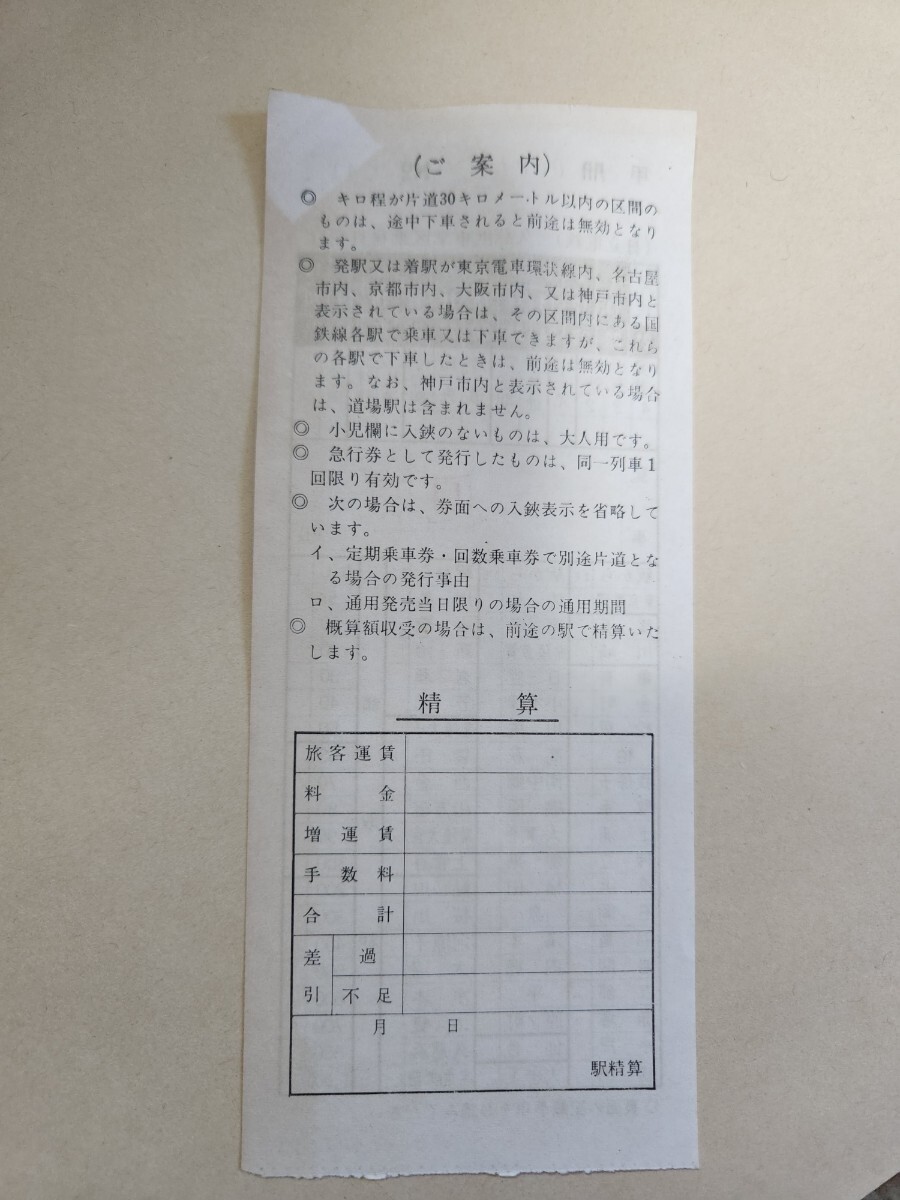 (ご案内)
◎ キロ程が片道30キロメートル以内の区間の
ものは、途中下車されると前途は無効となり
ます。
◎ 発駅又は着駅が東京電車環状線内、名古屋
市内、京都市内、大阪市内、又は神戸市内と
表示されている場合は、その区間内にある国
鉄線各駅で乗車又は下車できますが、これら
の各駅で下車したときは、前途は無効となり
ます。なお、神戸市内と表示されている場合
は、道場駅は含まれません。
◎ 小児欄に入鋏のないものは、大人用です。
◎ 急行券として発行したものは、同一列車1
回限り有効です。
◎ 次の場合は、券面への入鋏表示を省略して
います。
イ、定期乗車券・回数乗車券で別途片道とな
る場合の発行事由
ロ、通用発売当日限りの場合の通用期間
◎ 概算額収受の場合は、前途の駅で精算いた
します。
精算
旅客運賃
料金
増運賃
手数料
合計
差引
過
不足
月 日
駅精算